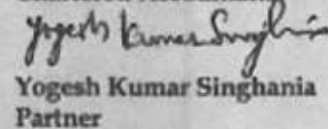 Yogesh Kumar Singhania
Yogesh Kumar Singhania
Partner